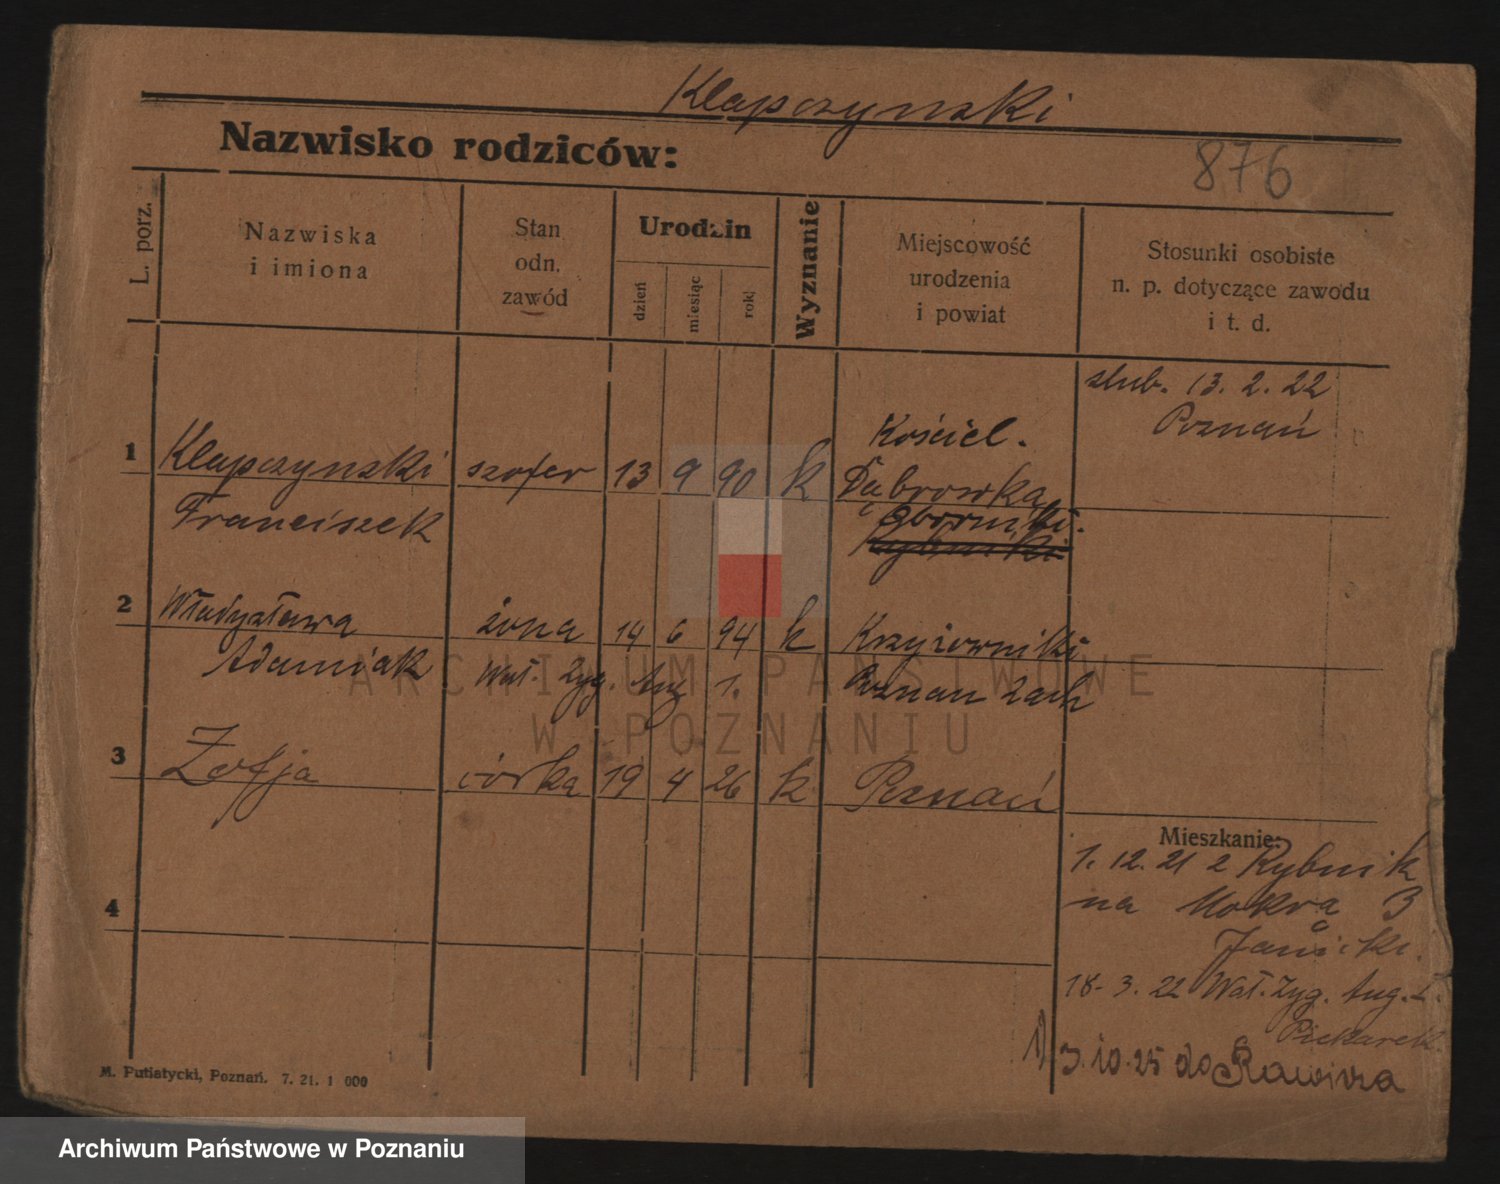 Klapczynski
Nazwisko rodziców:
876
L. porz.
Nazwiska
i imiona
Stan
odn.
zawód
Urodzin
dzień
miesiąc
rok
Wyznanie
Miejscowość
urodzenia
i powiat
Stosunki osobiste
n. p. dotyczące zawodu
i t. d.
slub. 13. 2. 22
Poznań
1 Klapczynski szofer 13 9 90 k Kościel.
Dąbrowka
Franciszek
Oborniki.
2 Władysława żona 14 6 94 k Krzyżowniki
Adamiak Wał. Zyg. Aug 1. Poznan Zach
3 Zofja córka 19 4 26 k Poznań
4
Mieszkanie:
1. 12. 21 z Rybnik
na Mokrą 3
Janicki.
18. 3. 22 Wał. Zyg. Aug. 1.
Piekarek
1) 3. 10. 25 do Rawicza
M. Putiatycki, Poznań. 7. 21. 1 000
ARCHIWUM PAŃSTWOWE
W POZNANIU
Archiwum Państwowe w Poznaniu